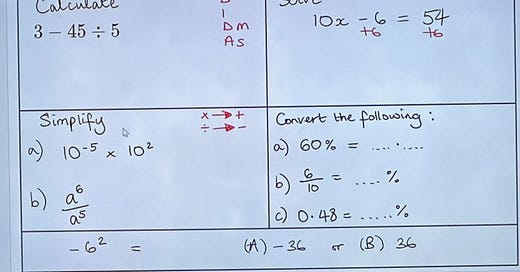 Calculate
3 − 45 ÷ 5
I
DM
AS
Solve
10x − 6 = 54
+6 +6
Simplify
× → +
÷ → −
a) 10⁻⁵ × 10²
b) a⁶/a⁵
Convert the following :
a) 60% = ..........
b) 6/10 = .... %
c) 0.48 = ..... %
−6² = (A) −36 or (B) 36